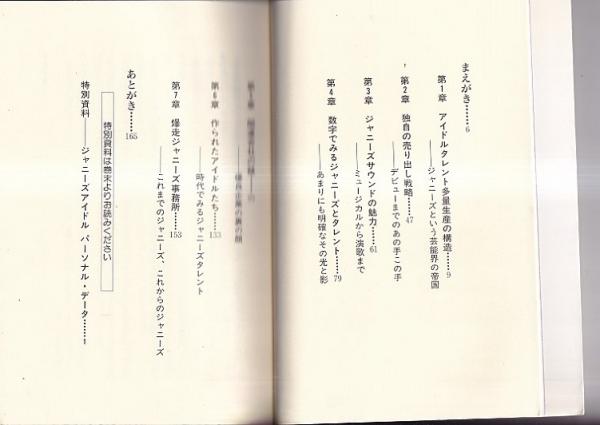 まえがき……6
第1章 アイドルタレント多量生産の構造……9
――ジャニーズという芸能界の帝国
第2章 独自の売り出し戦略……47
――デビューまでのあの手この手
第3章 ジャニーズサウンドの魅力……61
――ミュージカルから演歌まで
第4章 数字でみるジャニーズとタレント……79
――あまりにも明確なその光と影
第6章 作られたアイドルたち……133
――時代でみるジャニーズタレント
第7章 爆走ジャニーズ事務所……153
――これまでのジャニーズ、これからのジャニーズ
あとがき……165
特別資料は巻末よりお読みください
特別資料――ジャニーズアイドル パーソナル・データ……1